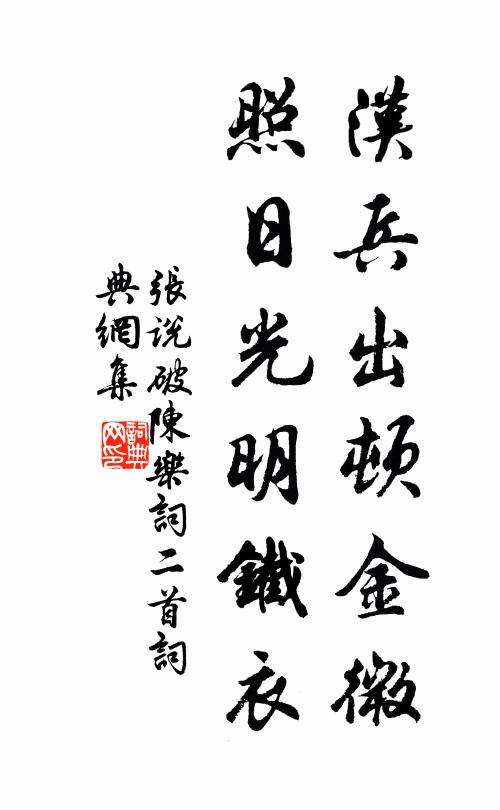 漢兵出頓金微
照日光明鐵衣
張說破陳樂詞二首詞
典網集
詞典网印